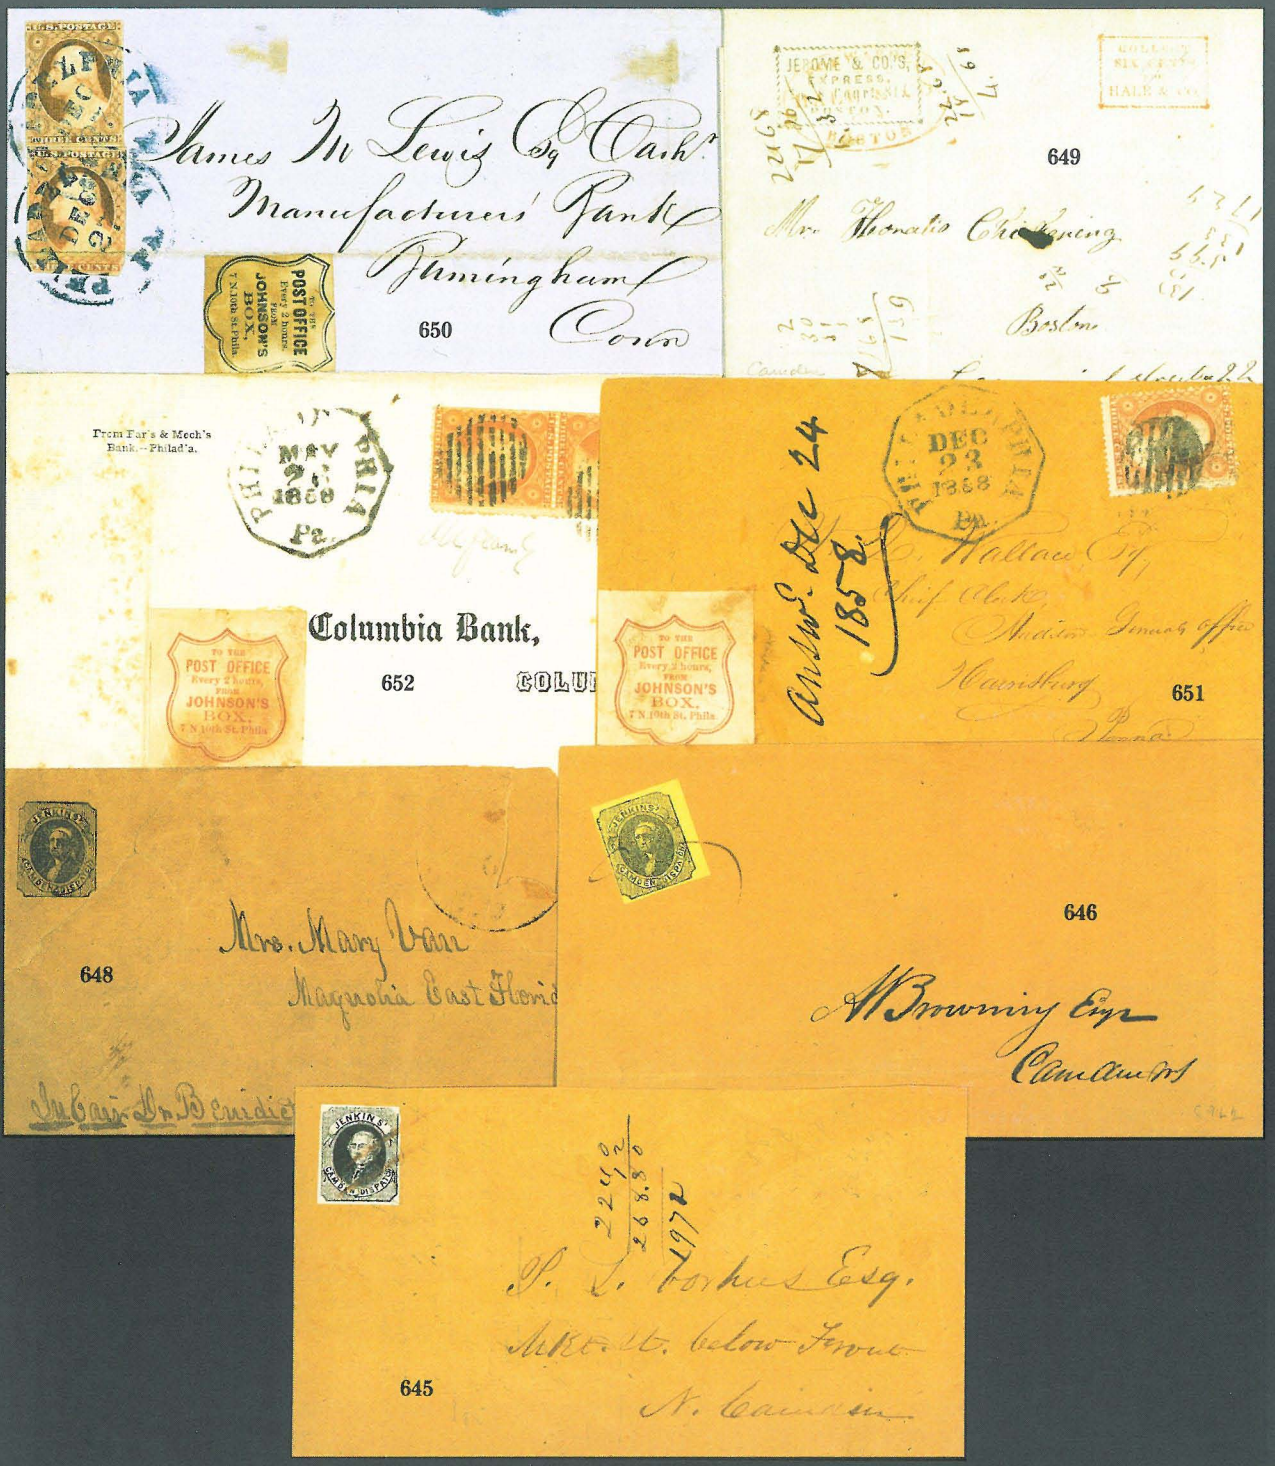 U.S. POSTAGE
THREE CENTS
PHILADELPHIA
DEC
U.S. POSTAGE
THREE CENTS
PHILADELPHIA Pa
DEC
James M Lewis Esq Cashr.
Manufacturers' Bank
Birmingham
Conn
TO THE
POST OFFICE
Every 2 hours,
FROM
JOHNSON'S
BOX,
7 N. 10th St. Phila
650
JEROME & CO'S,
EXPRESS,
BOSTON.
BOSTON
COLLECT
SIX CENTS
HALE & CO.
649
Mr. Horatio Chickering
Boston
Camden
From Far's & Mech's
Bank.--Philad'a.
PHILADELPHIA
MAY
1858
Pa.
Columbia Bank,
COLU
TO THE
POST OFFICE
Every 2 hours,
FROM
JOHNSON'S
BOX,
7 N. 10th St. Phila
652
PHILADELPHIA
DEC
23
1858
Pa.
answd. Dec 24
1858
Wallace Esq,
Chief Clerk,
Auditor Generals office
Harrisburg
Penna
TO THE
POST OFFICE
Every 2 hours,
FROM
JOHNSON'S
BOX.
7 N. 10th St. Phila
651
JENKINS'
CAMDEN DISPATCH
Mrs. Mary Van
Magnolia East Florid
In Care Dr. Benedict
648
JENKINS'
CAMDEN DISPATCH
646
A Browning Esqr
Camden NJ
JENKINS'
CAMDEN DISPATCH
2240
12
268.80
1972
S. L. Corhies Esq.
Mkt. st. below Front
N. Camden
645